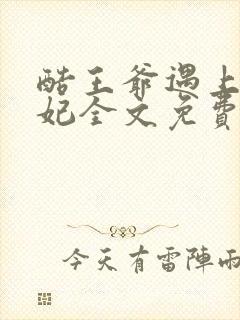 酷王爺遇上
妃全文免費
今天有雷陣雨